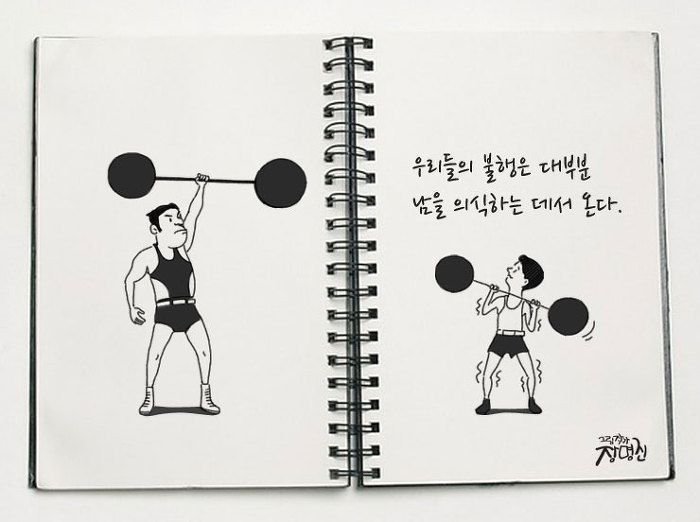 우리들의 불행은 대부분
남을 의식하는 데서 온다.
그림작가
장명진